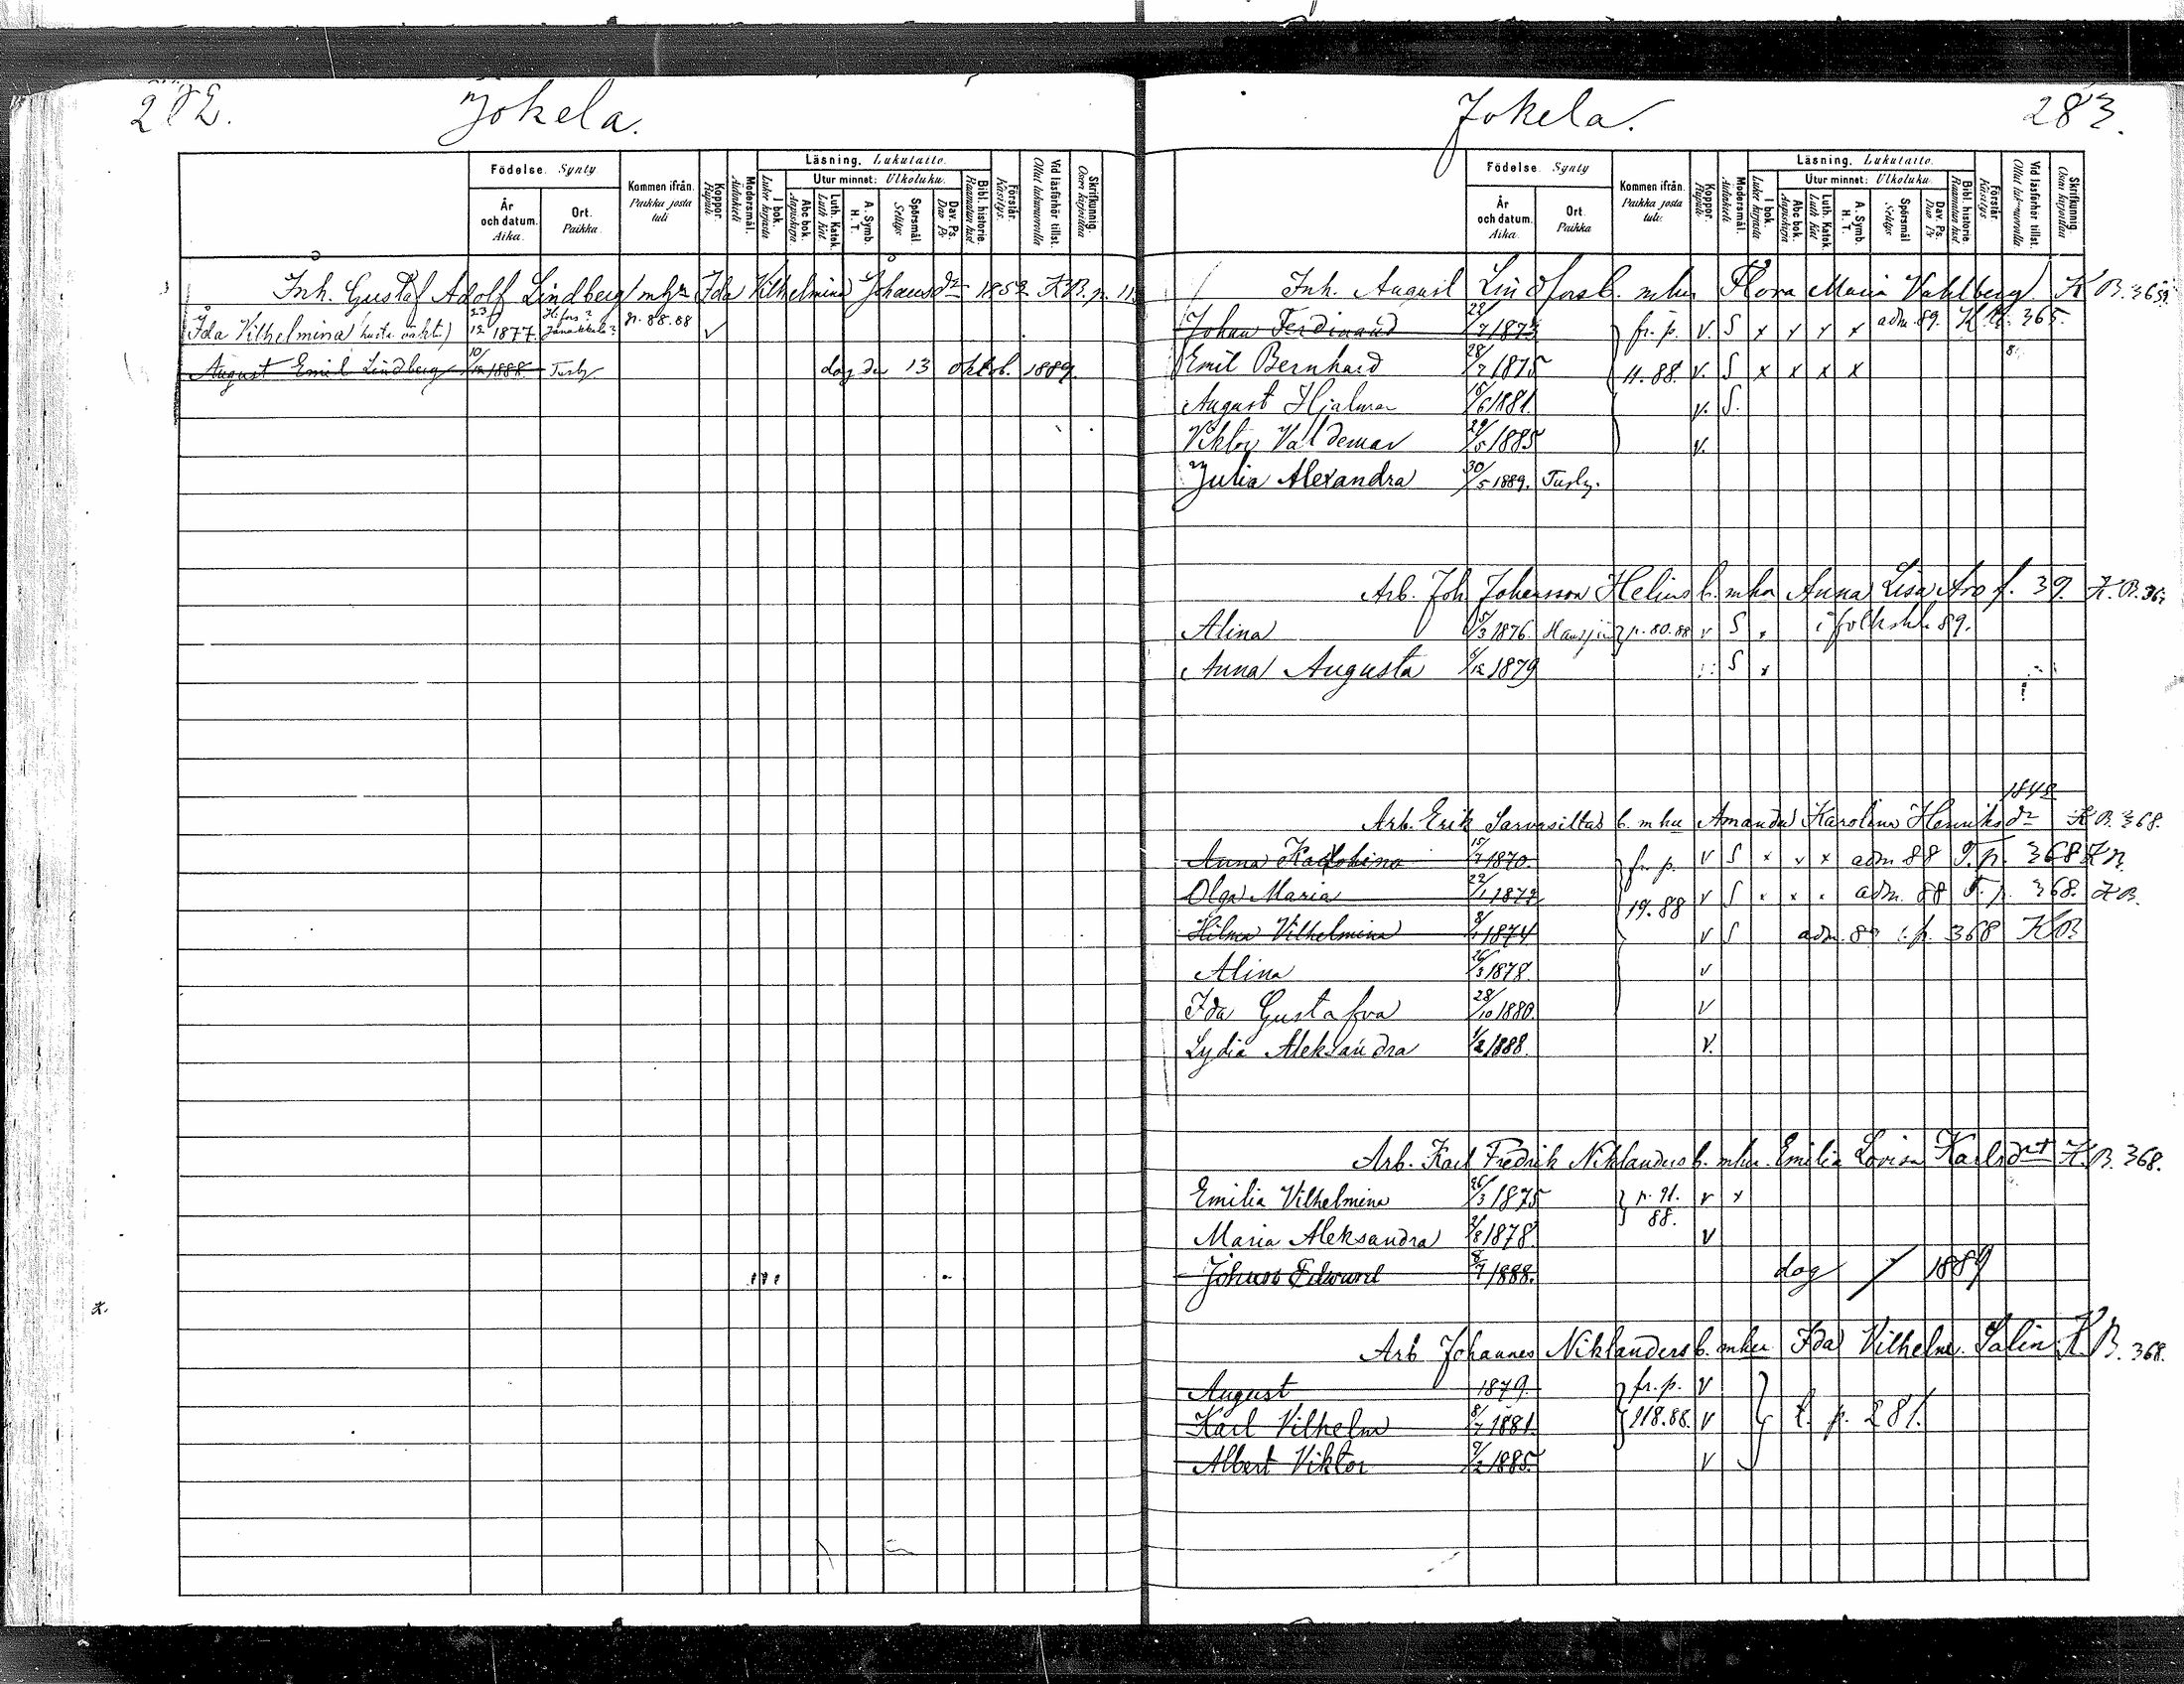 282.
Jokela.
Födelse. Synty
Kommen ifrån. Paikka josta tuli
Koppor. Rupuli
Modersmål. Äidinkieli
Läsning. Lukutaito.
Utur minnet: Ulkoluku.
År och datum. Aika.
Ort. Paikka.
I bok.
Abc bok.
Luth. Katek.
A. Symb. H. T.
Spörsmål
Dav. Ps.
Bibl. historie.
Förstår. Käsitys.
Vid läsförhör tillst.
Skrifkunnig.
Inh. Gustaf Adolf Lindberg mhu Ida Vilhelmina Johansdr 1852 K.B. p.
Ida Vilhelmina 23/12 1877. H:fors? Janakkala? p. 88.88 v
August Emil Lindberg 10/12 1888. Tusby dog den 13 oktob. 1889.
Jokela.
283.
Födelse. Synty
Kommen ifrån. Paikka josta tuli.
Koppor. Rupuli
Modersmål. Äidinkieli
Läsning. Lukutaito.
Utur minnet: Ulkoluku.
År och datum. Aika.
Ort. Paikka
I bok.
Abc bok.
Luth. Katek.
A. Symb. H. T.
Spörsmål
Dav. Ps.
Bibl. historie.
Förstår. Käsitys
Vid läsförhör tillst.
Skrifkunnig.
Inh. August Lindfors b. mhu Flora Maria Vahlberg K.B.
Johan Ferdinand 22/7 1873 fr. p. v. S x x x x adm. 89. K.B. 365.
Emil Bernhard 28/7 1875 11.88. v. S x x x x
August Hjalmar 15/6 1881. v. S.
Viktor Valdemar 29/5 1885 v.
Julia Alexandra 30/5 1889. Tusby.
Arb. Joh. Johansson Helins b. mhu Anna Lisa Aro f. 39. K.B.
Alina 5/3 1876. p. 80.88 v S x i folksk. 89.
Anna Augusta 9/12 1879 S x
1842
Arb. Erik b. mhu Amanda Karolina Henriksdr K.B. 368.
Anna 15/7 1870. fr. p. v S x v x adm 88 T. p. 368 K.B.
Olga Maria 22/1 1872 19.88 v S x x x adm. 88 T. p. 368. K.B.
Hilma Vilhelmina 8/1 1874 v S adm. 89 t. p. 368 K.B.
Alina 26/3 1878. v
Ida Gustafva 28/10 1880. v
Lydia Aleksandra 1/2 1888. v.
Arb. Karl Fredrik Niklanders b. mhu. Emilia Lovisa Karlsdr K.B. 368.
Emilia Vilhelmina 26/3 1875 p. 91. v x
88.
Maria Aleksandra 2/8 1878. v
Johan Edvard 8/7 1888. dog / 1889
Arb Johannes Niklanders b. mhu Ida Vilhelm. Salin K.B. 368.
August 1879. fr. p. v
Karl Vilhelm 8/7 1881. 118.88. v t. p. 281.
Albert Viktor 9/2 1885. v